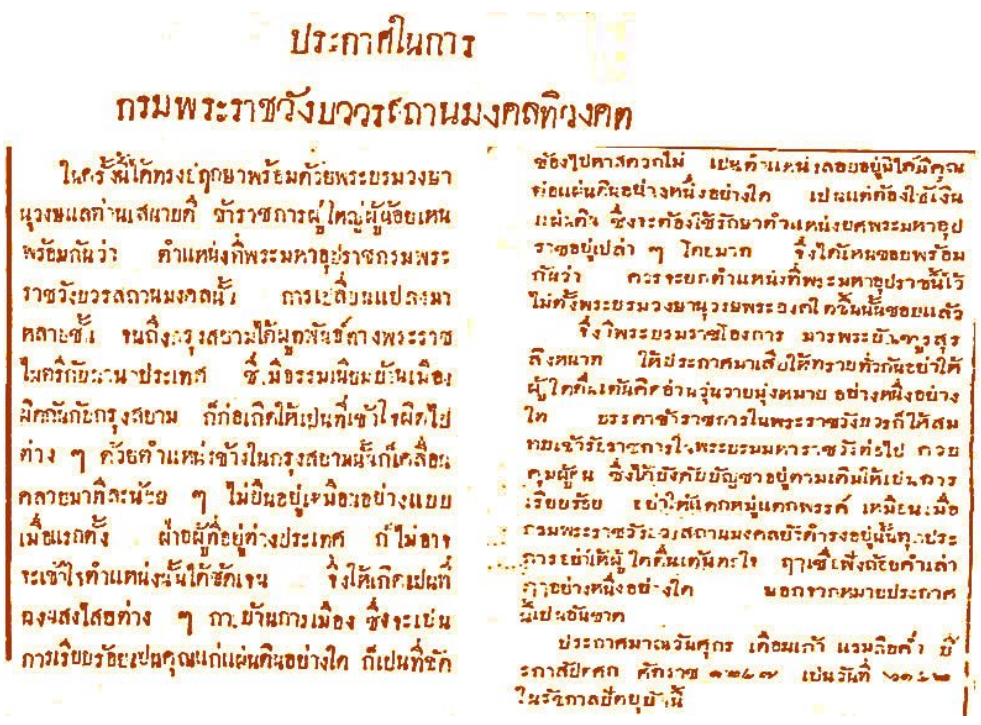 ประกาศในการ
กรมพระราชวังบวรสถานมงคลทิวงคต
ในครั้งนี้ได้ทรงปฤกษาพร้อมด้วยพระบรมวงษา
นุวงษแลท่านเสนาบดี ข้าราชการผู้ใหญ่ผู้น้อยเหน
พร้อมกันว่า ตำแหน่งที่พระมหาอุปราชกรมพระ
ราชวังบวรสถานมงคลนั้น การเปลี่ยนแปลงมา
หลายชั้น จนถึงกรุงสยามได้ผูกพันธ์ทางพระราช
ไมตรีกับนานาประเทศ ซึ่งมีธรรมเนียมบ้านเมือง
ผิดกันกับกรุงสยาม ก็ก่อเกิดให้เปนที่เข้าใจผิดไป
ต่าง ๆ ด้วยตำแหน่งข้างในกรุงสยามนั้นก็เคลื่อน
คลายมาทีละน้อย ๆ ไม่ยืนอยู่เหมือนอย่างแบบ
เมื่อแรกตั้ง ฝ่ายผู้ที่อยู่ต่างประเทศ ก็ไม่อาจ
จะเข้าใจตำแหน่งนั้นได้ชัดเจน จึงให้เกิดเปนที่
ฉงนสงไสยต่าง ๆ การบ้านการเมือง ซึ่งจะเปน
การเรียบร้อยเปนคุณแก่แผ่นดินอย่างใด ก็เปนที่ขัด
ข้องไปหาสดวกไม่ เปนตำแหน่งลอยอยู่มิได้มีคุณ
ต่อแผ่นดินอย่างหนึ่งอย่างใด เปนแต่ต้องใช้เงิน
แผ่นดิน ซึ่งจะต้องใช้รักษาตำแหน่งยศพระมหาอุป
ราชอยู่เปล่า ๆ โดยมาก จึงได้เหนชอบพร้อม
กันว่า ควรจะยกตำแหน่งที่พระมหาอุปราชนี้ไว้
ไม่ตั้งพระบรมวงษานุวงษพระองค์ใดขึ้นนั้นชอบแล้ว
จึงมีพระบรมราชโองการ มารพระบัณฑูรสุร
สิงหนาท ให้ประกาศมาเพื่อให้ทราบทั่วกันอย่าให้
ผู้ใดตื่นเต้นคิดอ่านวุ่นวายมุ่งหมาย อย่างหนึ่งอย่าง
ใด บรรดาข้าราชการในพระราชวังบวรก็ให้สม
ทบเข้ารับราชการในพระบรมมหาราชวังต่อไป ควบ
คุมผู้คน ซึ่งได้บังคับบัญชาอยู่ตามเดิมให้เปนการ
เรียบร้อย อย่าให้แตกหมู่แตกพรรค์ เหมือนเมื่อ
กรมพระราชวังบวรสถานมงคลยังดำรงอยู่นั้นทุกประ
การ อย่าให้ผู้ใดตื่นเต้นตกใจ ฤๅเชื่อฟังถ้อยคำเล่า
ฦๅอย่างหนึ่งอย่างใด นอกจากหมายประกาศ
นี้เปนอันขาด
ประกาศมาณวันศุกร เดือนเก้า แรมสิบค่ำ ปี
รกาสัปตศก ศักราช ๑๒๔๗ เปนวันที่
ในรัชกาลปัตยุบันนี้